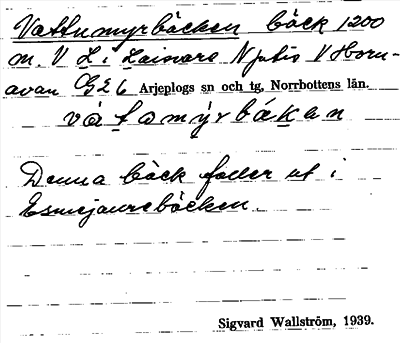 Vattumyrbäcken bäck 1200
m. V L. i Laisars N Jutis V Horn-
avan G2 6 Arjeplogs sn och tg, Norrbottens län.
Denna bäck faller ut i
Esmejaurebäcken.
Sigvard Wallström, 1939.